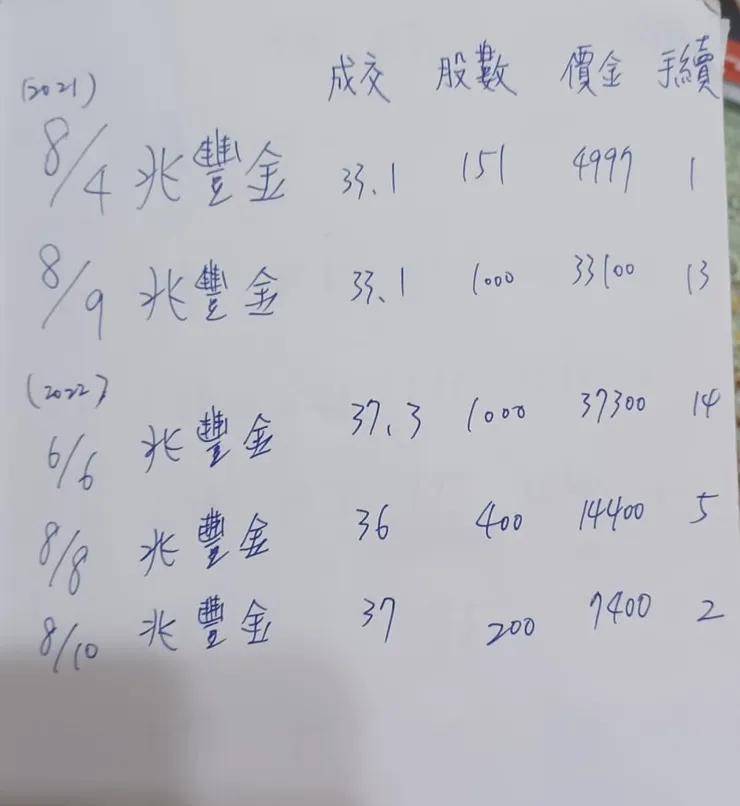 成交 股數 價金 手續
(2021)
8/4 兆豐金 33.1 151 4997 1
8/9 兆豐金 33.1 1000 33100 13
(2022)
6/6 兆豐金 37.3 1000 37300 14
8/8 兆豐金 36 400 14400 5
8/10 兆豐金 37 200 7400 2